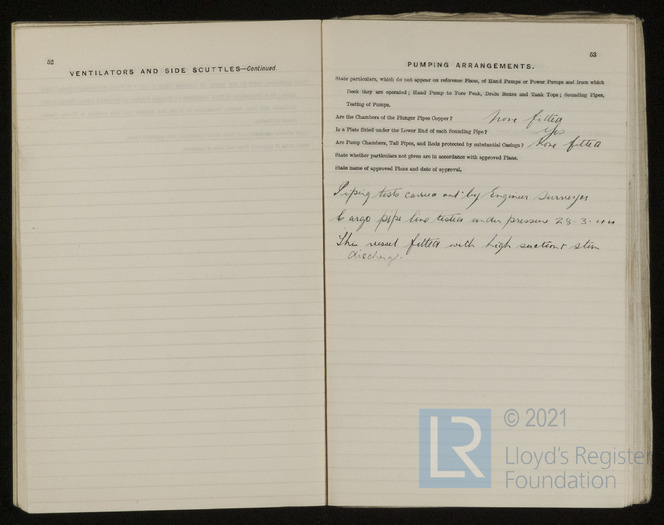 52
VENTILATORS AND SIDE SCUTTLES—Continued.
53
PUMPING ARRANGEMENTS.
State particulars, which do not appear on reference Plans, of Hand Pumps or Power Pumps and from which
Deck they are operated; Hand Pump to Fore Peak, Drain Boxes and Tank Tops; Sounding Pipes,
Testing of Pumps.
Are the Chambers of the Plunger Pipes Copper? None fitted
Is a Plate fitted under the Lower End of each Sounding Pipe? Yes
Are Pump Chambers, Tail Pipes, and Rods protected by substantial Casings? None fitted
State whether particulars not given are in accordance with approved Plans.
State name of approved Plans and date of approval.
Piping tests carried out by Engineer Surveyor
Cargo pipe line tested under pressure 28-3-44
The vessel fitted with high suction & stern
discharge.
© 2021
LR
Lloyd's Register
Foundation